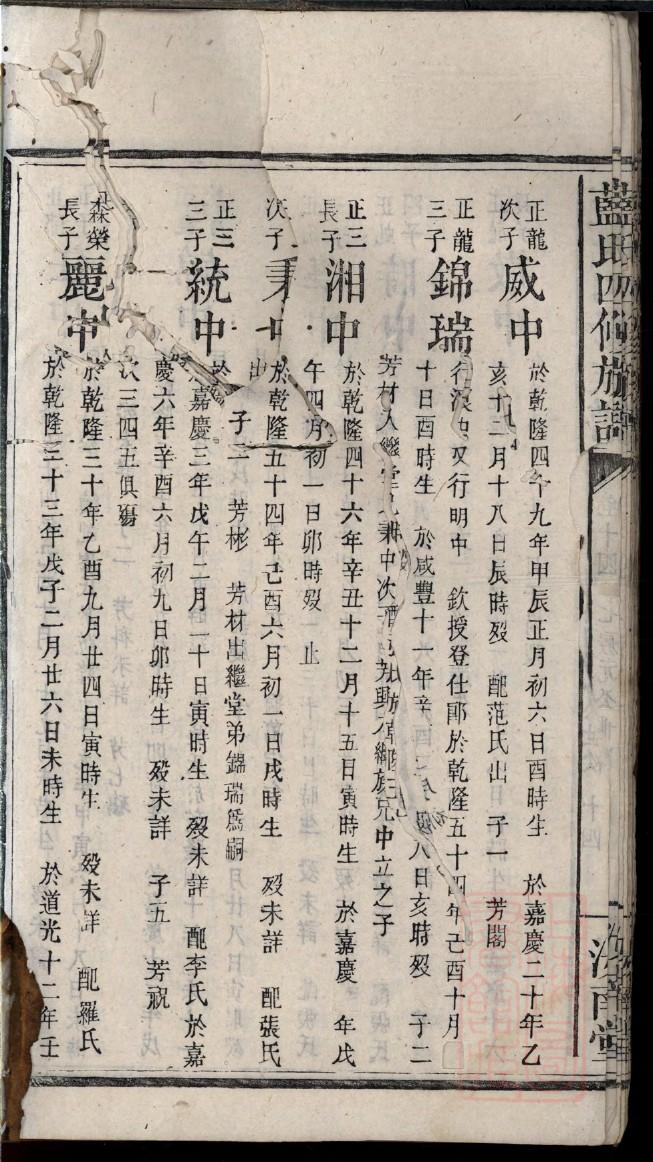 藍氏四修族譜
正龍次子
威中
於乾隆四十九年甲辰正月初六日酉時生 於嘉慶二十年乙
亥十二月十八日辰時歿 配范氏出 子一 芳閣
正龍三子
錦瑞
行 又行明中 欽授登仕郎於乾隆五十四年己酉十月
十日酉時生 於咸豐十一年辛酉 八日亥時歿 子二
芳材入繼堂兄 中次 族兄中立之子
正三長子
湘中
於乾隆四十六年辛丑十二月十五日寅時生 於嘉慶 年戊
午四月初一日卯時歿 止
正三次子
秉中
於乾隆五十四年己酉六月初一日戌時生 歿未詳 配張氏
出 子二 芳彬 芳材出繼堂弟錦瑞爲嗣
正三三子
統中
於嘉慶三年戊午二月一十日寅時生 歿未詳 配李氏於嘉
慶六年辛酉六月初九日卯時生 歿未詳 子五 芳祝
次三四五俱殤
森榮長子
麗中
於乾隆三十年乙酉九月廿四日寅時生 歿未詳 配羅氏
於乾隆三十三年戊子二月廿六日未時生 於道光十二年壬